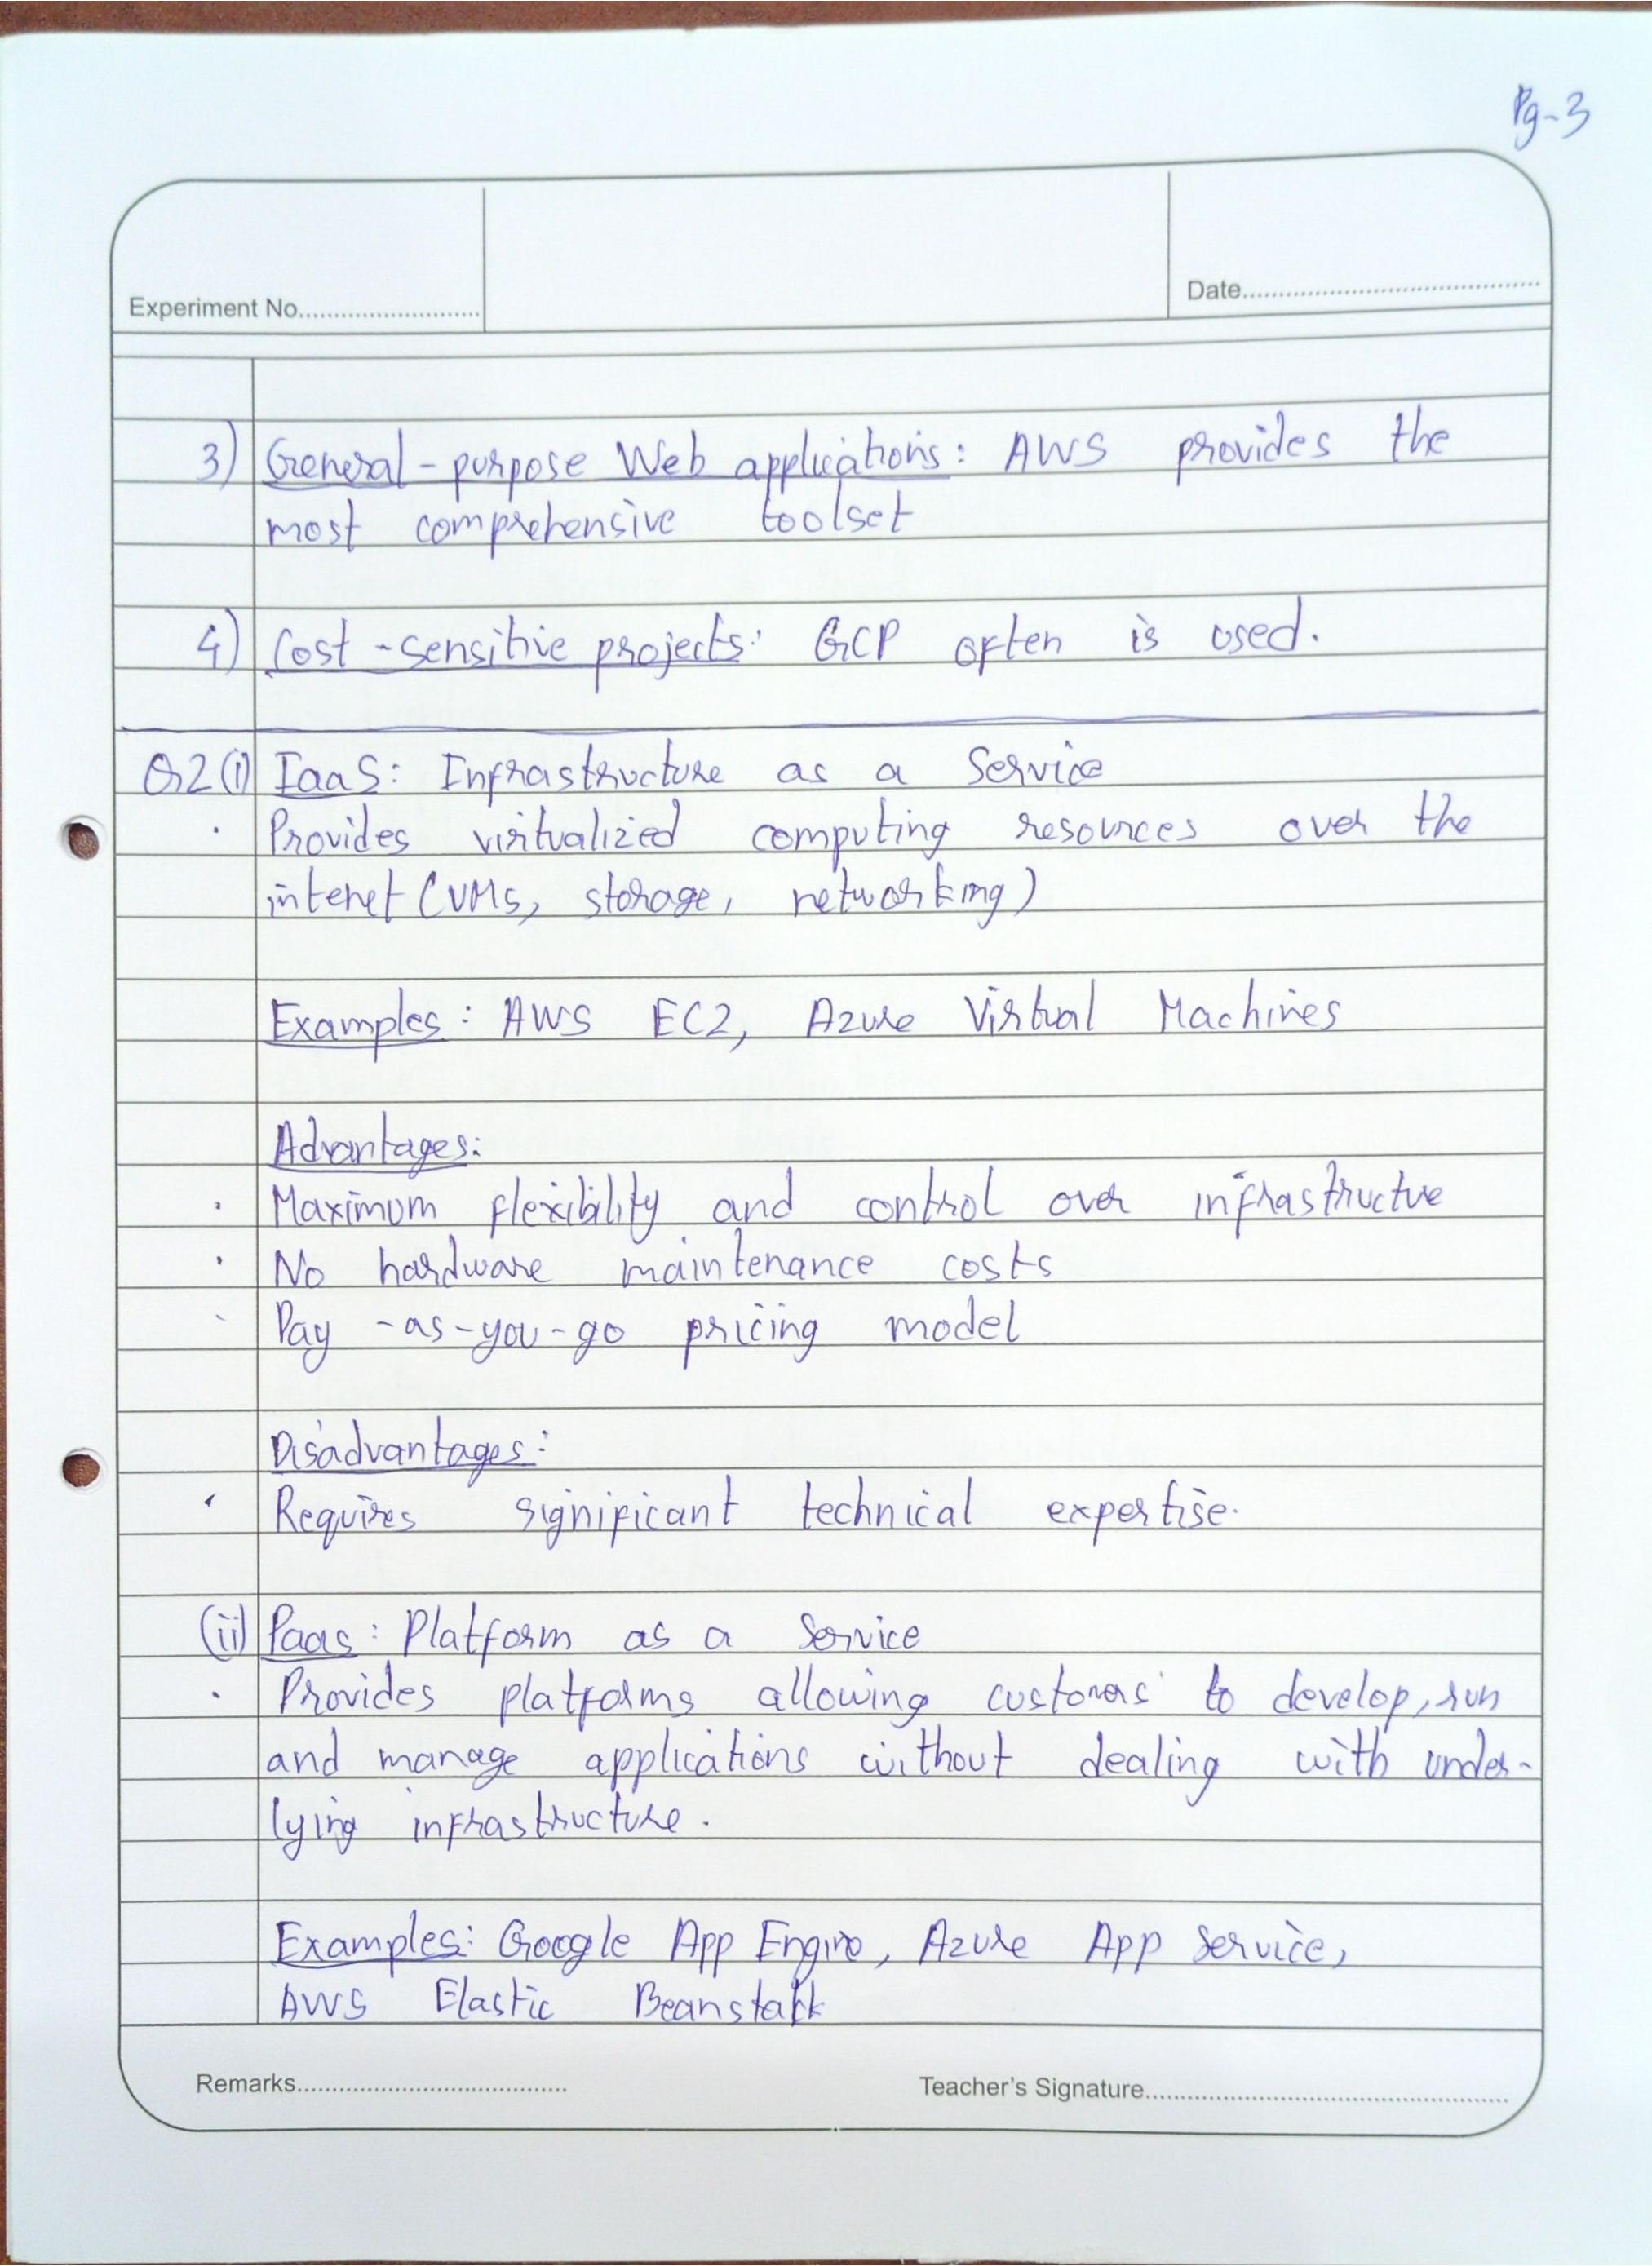 Pg-3
Experiment No.
Date
3) General-purpose Web applications: AWS provides the
most comprehensive toolset
4) Cost-sensitive projects: GCP often is used.
Q2(i) IaaS: Infrastructure as a Service
· Provides virtualized computing resources over the
intenet (VMs, storage, networking)
Examples: AWS EC2, Azure Virtual Machines
Advantages:
· Maximum flexibility and control over infrastructue
· No hardware maintenance costs
· Pay-as-you-go pricing model
Disadvantages:
· Requires significant technical expertise.
(ii) Paas: Platform as a Service
· Provides platforms allowing customers to develop, run
and manage applications without dealing with under-
lying infrastructure.
Examples: Google App Engine, Azure App Service,
AWS Elastic Beanstalk
Remarks
Teacher's Signature